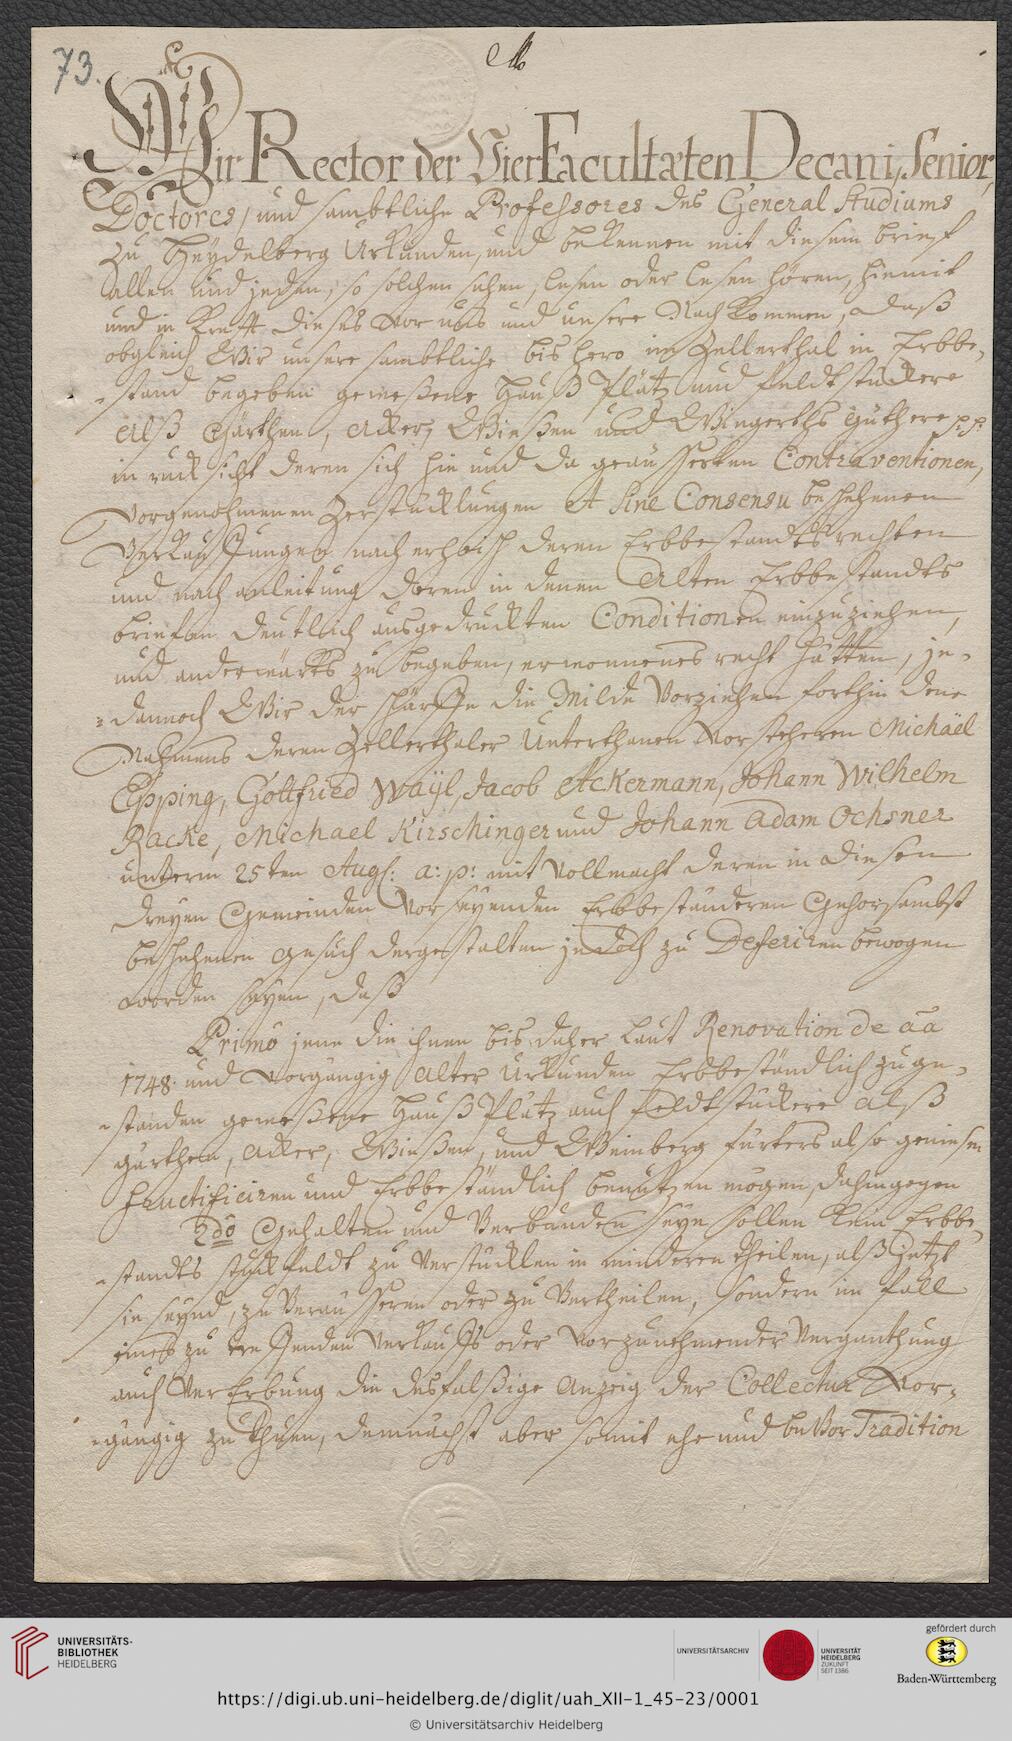 73.
Wir Rector der Vier Facultæten Decani, Senior,
Doctores, und sambtliche Professores des General Studiums
zu Heydelberg Urkunden, und bekennen mit diesem brief
allen und jeden, so solchen sehen, lesen oder lesen hören, hiemit
und in Krafft dieses vor uns und unsere Nach Kommen, daß
obgleich Wir unsere sambtliche bis hero im Zellerthal in Erbbe-
-stand begeben gewesene Hauß Plätz und feldt stückere
alß Gärthen, Äcker, Wießen und Wingerths Güthere p.p.
in ruck sicht deren sich hie und da geäusserten Contraventionen,
vorgenohmenen Zerstücklungen et sine Consensu beschehenen
Verkauffungen nach erheisch deren Erbbestandts rechten
und nach anleitung deren in denen Alten Erbbestandts
briefen deutlich ausgedruckten Conditionen einzuziehen,
und anderwärts zu begeben, erwonnenes recht hätten, je-
-dannoch Wir der schärffe die Milde Vorziehen forthin dene
Nahmens deren Zellerthaler Unterthanen Vorstehern Michäel
Epping, Gottfried Wayl, Jacob Ackermann, Johann Wilhelm
Racke, Michael Kirschinger und Johann Adam Ochsner
unterm 25ten Aug: a: p: mit Vollmacht deren in diesen
dreyen Gemeinden Vorseyenden Erbbeständeren Gehorsambst
beschehenen gesuch dergestalten jedoch zu Deferiren bewogen
worden seyen, daß
Primò jene die ihnen bis daher Laut Renovation de aa
1748. und Vorgängig alter Urkunden Erbbeständlich zuge-
-standen gewesene Hauß Plätz auch feldt stückere alß
gärthen, Äcker, Wießen, und Weinberg furters also geniesen
fructificiren und Erbbeständlich benutzen mögen, dahingegen
2dò Gehalten und Verbunden seyn sollen kein Erbbe-
-standts stück feldt zu verstücklen in mindere theilen, alß jetzt
sie seynd, zu Veräusseren oder zu Vertheilen, sondern im fall
eines zu treffenden Verkauffs oder vorzunehmender Verganthung
auch Ver Erbung die desfalßige Anzeig der Collectur Vor-
-gängig zu thuen, demnächst aber somit ehe und bevor Tradition
UNIVERSITÄTS-
BIBLIOTHEK
HEIDELBERG
UNIVERSITÄTSARCHIV
UNIVERSITÄT
HEIDELBERG
ZUKUNFT
SEIT 1386
gefördert durch
Baden-Württemberg
https://digi.ub.uni-heidelberg.de/diglit/uah_XII-1_45-23/0001
© Universitätsarchiv Heidelberg